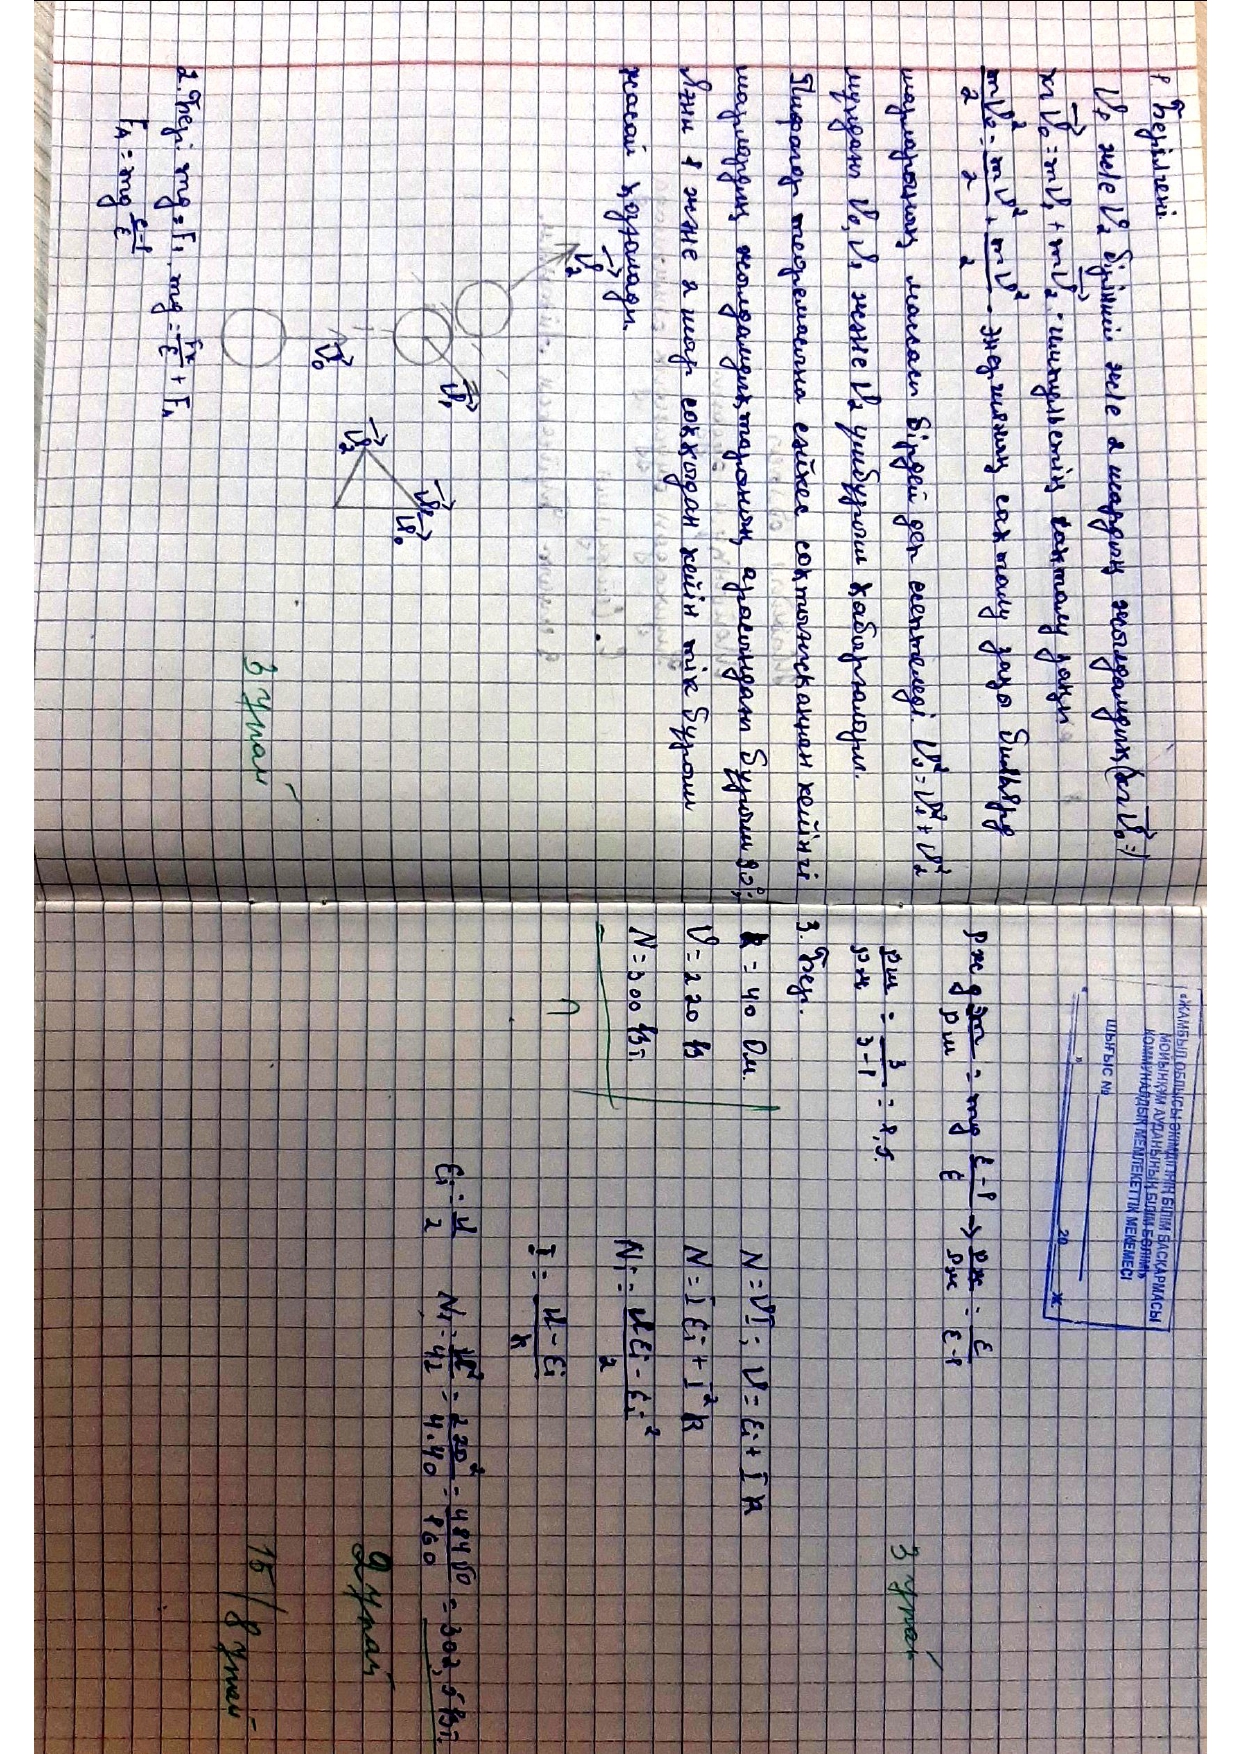 1. Берілгені:
V₁ және V₂ бірінші және 2 шардың жылдамдық (хг V₀ =)
хг V₀ = mV₁ + mV₂ : импульстің сақталу заңы
mV₀²/2 = mV²/2 + mV²/2 - энергияның сақталу заңы бильярд
шарларының массасы бірдей деп есептеледі. V₀² = V₁² + V₂²
мұндағы V₀, V₁ және V₂ үшбұрыш қабырғалары.
Пифагор теоремасына сәйкес соқтығысқаннан кейінгі
шарлардың жылдамдықтарының арасындағы бұрыш 90°;
Яғни 1 және 2 шар соққыдан кейін тік бұрыш
жасай қозғалады.
V₂
V₁
V₀
V₂
V₁
V₀
2. Бері: mg = F₁, mg = Fк/ε + F_A
F_A = mg (ε-1)/ε
3 ұпай
«ЖАМБЫЛ ОБЛЫСЫ ӘКІМДІГІНІҢ БІЛІМ БАСҚАРМАСЫ
МОЙЫНҚҰМ АУДАНЫНЫҢ БІЛІМ БӨЛІМІ»
КОММУНАЛДЫҚ МЕМЛЕКЕТТІК МЕКЕМЕСІ
ШЫҒЫС №
" " 20 ж.
ρж g m/ρш = mg (ε-1)/ε → ρж/ρж = ε/ε-1
ρш/ρж = 3/3-1 = 1,5.
3 ұпай
3. Бер.
R = 40 Ом.
V = 220 В
N = 300 Вт
N = VI; V = εi + IR
N = Iεi + I²R
N₁ = Uεi - εi²/2
I = U - εi/R
εi = U/2
N₁ = U²/4R = 220²/4·40 = 48400/160 = 302,5 Вт.
2 ұпай
15/8 ұпай